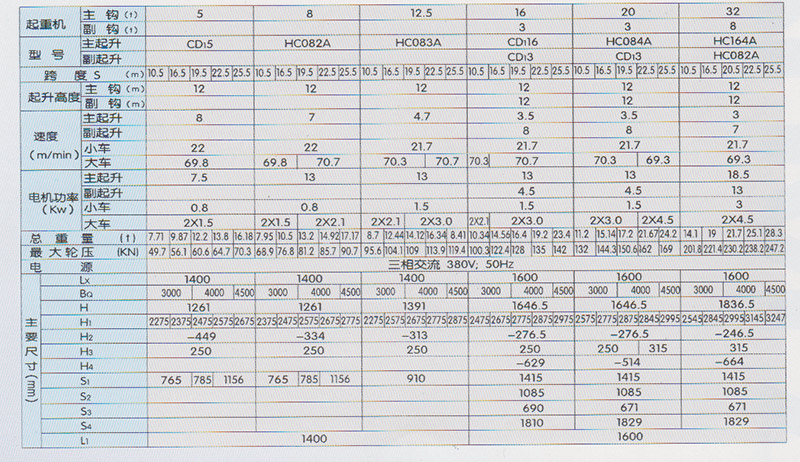 起重机 主 钩 (t) 5 8 12.5 16 20 32
副 钩 (t) 3 3 8
型 号 主起升 CD15 HC082A HC083A CD116 HC084A HC164A
副起升 CD13 CD13 HC082A
跨 度 S (m) 10.5 16.5 19.5 22.5 25.5 10.5 16.5 19.5 22.5 25.5 10.5 16.5 19.5 22.5 25.5 10.5 16.5 19.5 22.5 25.5 10.5 16.5 19.5 22.5 25.5 10.5 16.5 20.5 22.5 25.5
起升高度 主 钩 (m) 12 12 12 12 12 12
副 钩 (m) 12 12 12
速度 (m/min) 主起升 8 7 4.7 3.5 3.5 3
副起升 8 8 7
小车 22 22 21.7 21.7 21.7 21.7
大车 69.8 69.8 70.7 70.3 70.7 70.3 70.7 70.3 69.3 69.3
电机功率 (Kw) 主起升 7.5 13 13 13 13 18.5
副起升 4.5 4.5 13
小车 0.8 0.8 1.5 1.5 1.5 3
大车 2X1.5 2X1.5 2X2.1 2X2.1 2X3.0 2X2.1 2X3.0 2X3.0 2X4.5 2X4.5
总 重 量 (t) 7.71 9.87 12.2 13.8 16.18 7.95 10.5 13.2 14.92 17.17 8.7 12.44 14.12 16.34 8.41 10.34 14.56 16.4 19.2 23.4 11.2 15.14 17.2 21.67 24.2 14.1 19 21.7 25.1 28.3
最 大 轮 压 (KN) 49.7 56.1 60.6 64.7 70.3 68.9 76.8 81.2 85.7 90.7 95.6 104.1 109 113.9 119.4 100.3 122.4 128 135 142 132 144.3 150.6 162 169 201.8 221.4 230.2 238.2 247.2
电 源 三相交流 380V; 50Hz
主要尺寸(mm) LX 1400 1400 1400 1600 1600 1600
BQ 3000 4000 4500 3000 4000 4500 3000 4000 4500 3000 4000 4500 3000 4000 4500 3000 4000 4500
H 1261 1261 1391 1646.5 1646.5 1836.5
H1 2275 2375 2475 2575 2675 2375 2475 2575 2675 2775 2275 2575 2675 2775 2875 2475 2675 2775 2875 2975 2575 2775 2875 2845 2995 2545 2845 2995 3145 3247
H2 -449 -334 -313 -276.5 -276.5 -246.5
H3 250 250 250 250 250 315 315
H4 -629 -514 -664
S1 765 785 1156 765 785 1156 910 1415 1415 1415
S2 1085 1085 1085
S3 690 671 671
S4 1810 1829 1829
L1 1400 1600